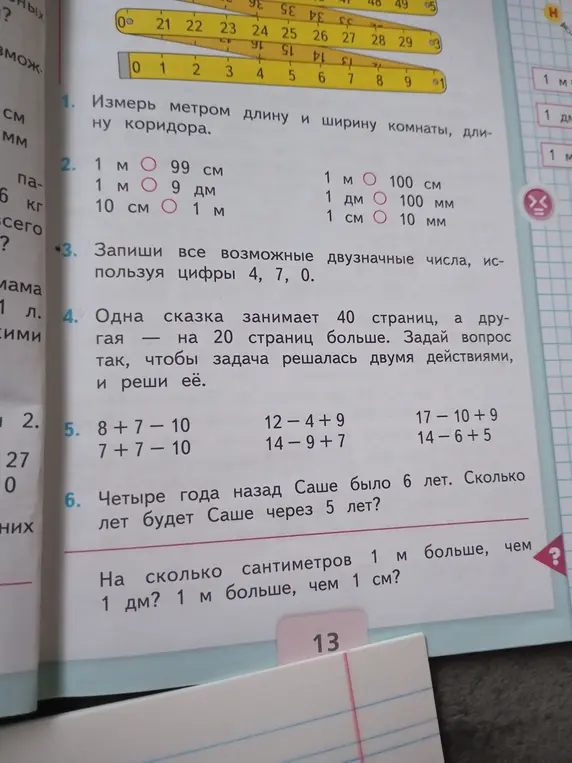 48 49 5
36 35 34 33
0 21 22 23 24 25 26 27 28 29 3
16 15 14
0 1 2 3 4 5 6 7 8 9 1
1. Измерь метром длину и ширину комнаты, дли-
ну коридора.
2. 1 м ○ 99 см
1 м ○ 9 дм
10 см ○ 1 м
1 м ○ 100 см
1 дм ○ 100 мм
1 см ○ 10 мм
3. Запиши все возможные двузначные числа, ис-
пользуя цифры 4, 7, 0.
4. Одна сказка занимает 40 страниц, а дру-
гая — на 20 страниц больше. Задай вопрос
так, чтобы задача решалась двумя действиями,
и реши её.
5. 8 + 7 − 10
7 + 7 − 10
12 − 4 + 9
14 − 9 + 7
17 − 10 + 9
14 − 6 + 5
6. Четыре года назад Саше было 6 лет. Сколько
лет будет Саше через 5 лет?
На сколько сантиметров 1 м больше, чем
1 дм? 1 м больше, чем 1 см?
?
13
см
мм
па-
6 кг
?
мама
1 л.
2.
27
0
Н
1 м
1 дм
1 м